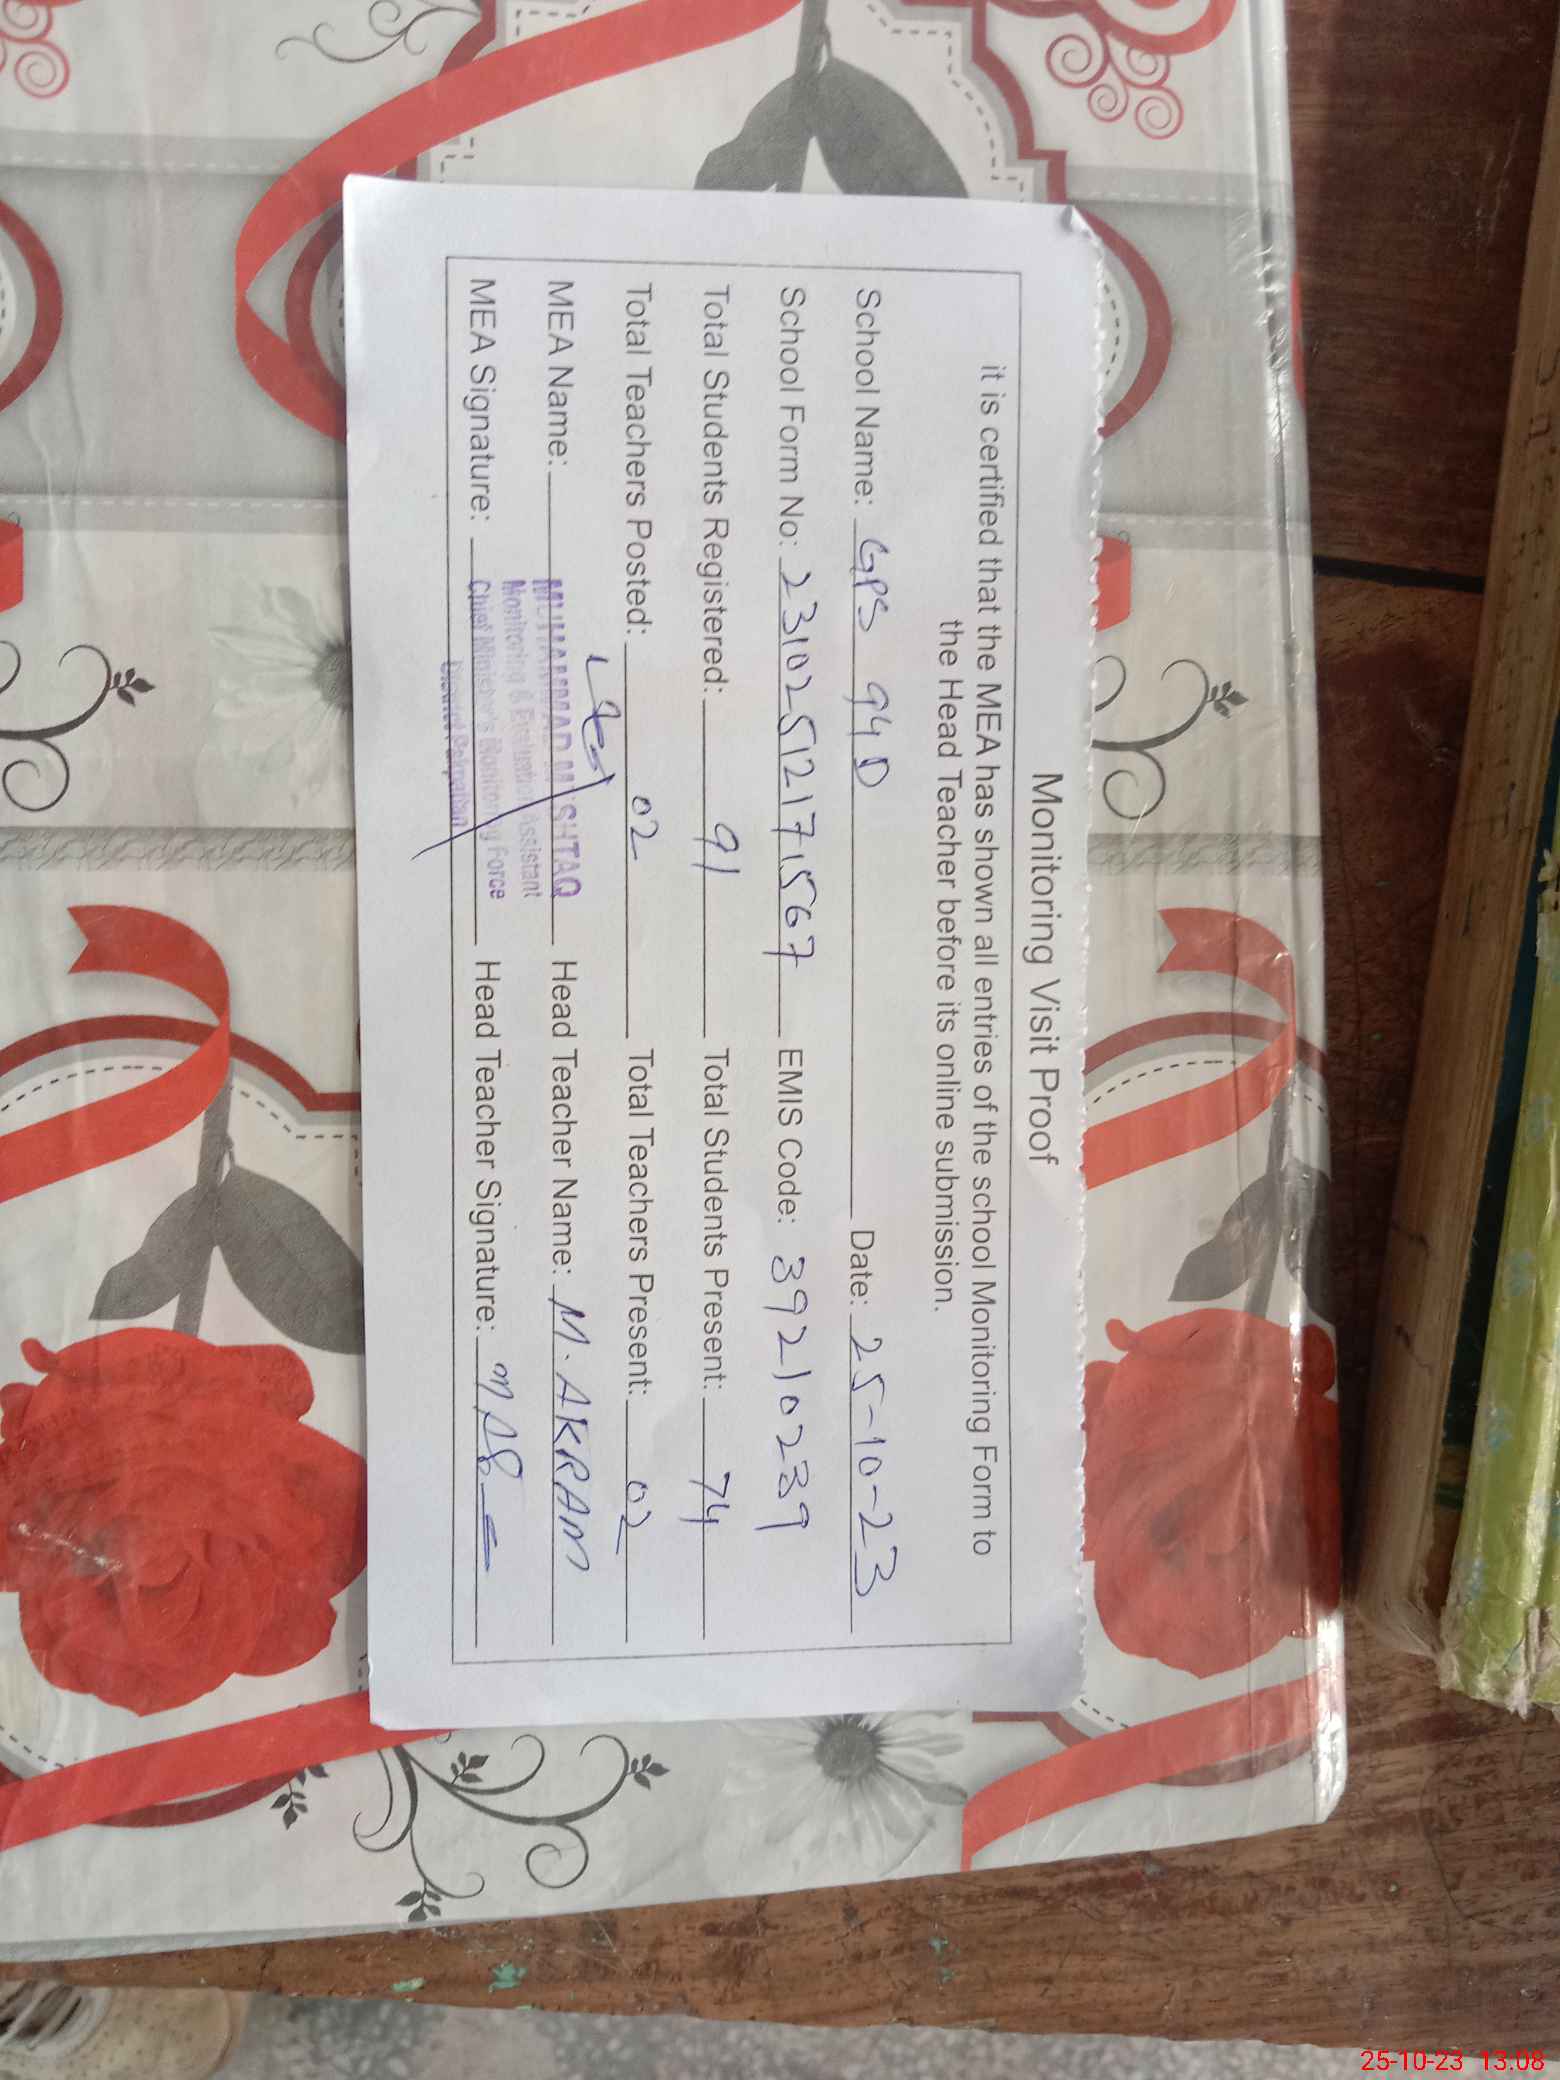 Monitoring Visit Proof
it is certified that the MEA has shown all entries of the school Monitoring Form to
the Head Teacher before its online submission.
School Name: GPS 94 D Date: 25-10-23
School Form No: 23102512171567 EMIS Code: 39210239
Total Students Registered: 91 Total Students Present: 74
Total Teachers Posted: 02 Total Teachers Present: 02
MEA Name: MUHAMMAD MUSHTAQ Head Teacher Name: M. AKRAM
Monitoring & Evaluation Assistant
Chief Minister's Monitoring Force
MEA Signature: Head Teacher Signature:
25-10-23 13:08